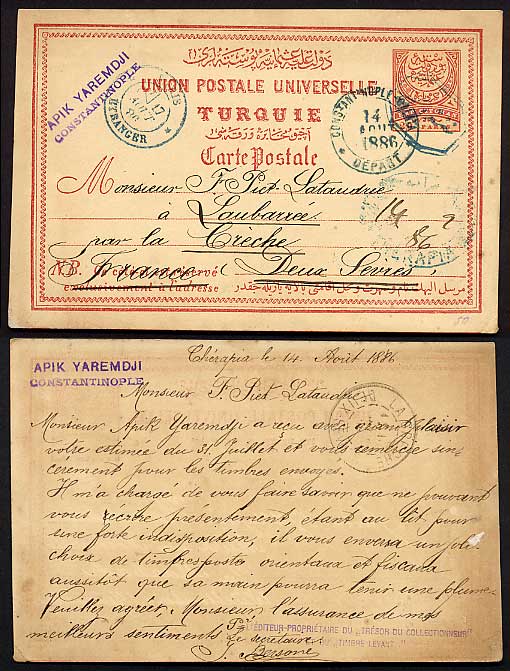 دولت عليه عثمانيه پوسته لرى
UNION POSTALE UNIVERSELLE
TURQUIE
Carte Postale
APIK YAREMDJI
CONSTANTINOPLE
ETRANGER
PARIS
CONSTANTINOPLE
14
AOUT
1886
DÉPART
Monsieur F. Piet Lataudrie
à Loubarrée
par la Crèche
France (Deux Sèvres)
N.B. Ce côté est réservé
exclusivement à l'adresse
14
86
APIK YAREMDJI
CONSTANTINOPLE
Thérapia le 14 Août 1886
Monsieur F. Piet Lataudrie
Monsieur Apik Yaremdji a reçu avec grand plaisir
votre estimée du 31 Juillet et vous remercie sin-
cèrement pour les timbres envoyés.
Il m'a chargé de vous faire savoir que ne pouvant
vous écrire présentement, étant au lit pour
une forte indisposition, il vous enverra un joli
choix de timbres postes orientaux et fiscaux
aussitôt que sa main pourra tenir une plume.
Veuillez agréer, Monsieur l'assurance de mes
meilleurs sentiments
EDITEUR-PROPRIÉTAIRE DU „TRÉSOR DU COLLECTIONNEUR"
DU „TIMBRE LEVANT"
Le secrétaire
J. Bersone